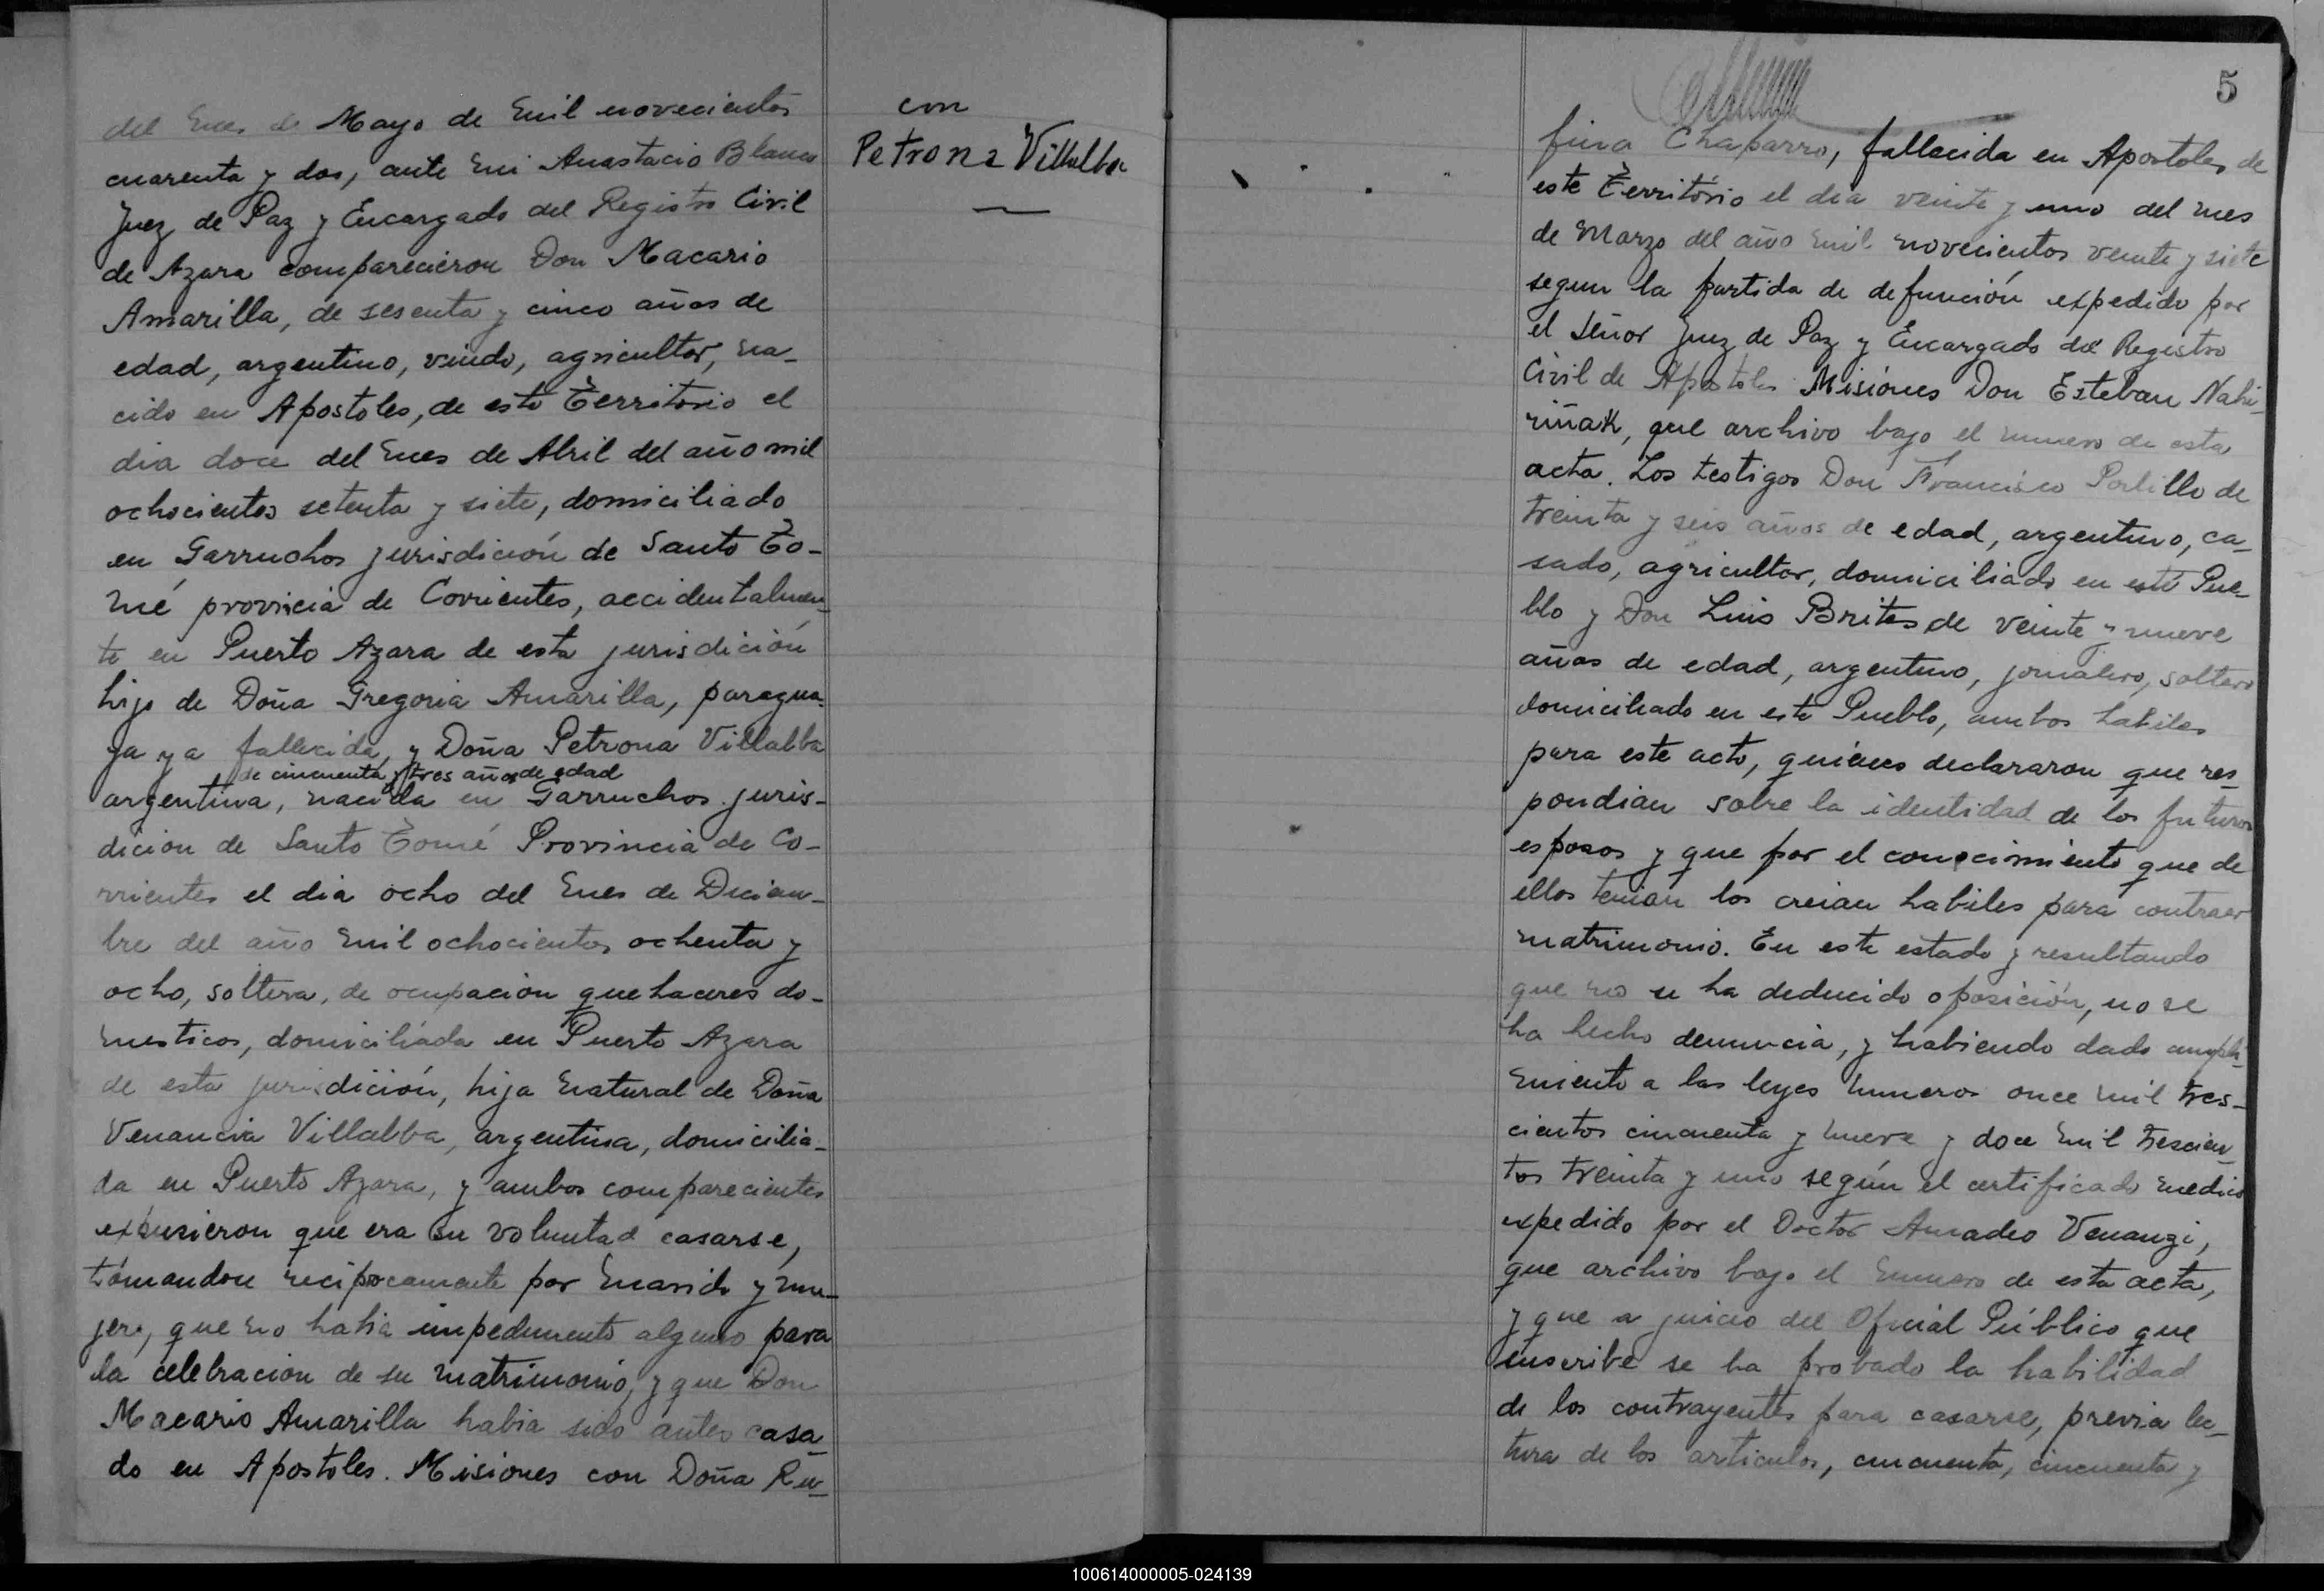 del mes de Mayo de mil novecientos
cuarenta y dos, ante mi Anastacio Blanco
Juez de Paz y Encargado del Registro Civil
de Azara comparecieron Don Macario
Amarilla, de sesenta y cinco años de
edad, argentino, viudo, agricultor, na-
cido en Apostoles, de este Territorio el
dia doce del mes de Abril del año mil
ochocientos setenta y siete, domiciliado
en Garruchos jurisdición de Santo To-
mé provincia de Corrientes, accidentalmen-
te en Puerto Azara de esta jurisdición
hijo de Doña Gregoria Amarilla, paragua-
ya ya fallecida, y Doña Petrona Villalba
de cincuenta y tres años de edad
argentina, nacida en Garruchos juris-
dicion de Santo Tomé Provincia de Co-
rrientes el dia ocho del mes de Diciem-
bre del año mil ochocientos ochenta y
ocho, soltera, de ocupación quehaceres do-
mesticos, domiciliada en Puerto Azara
de esta jurisdición, hija natural de Doña
Venancia Villalba, argentina, domicilia-
da en Puerto Azara, y ambos comparecientes
expusieron que era su voluntad casarse,
tómandose reciprocamente por marido y mu-
jer, que no habia impedimento alguno para
la celebracion de su matrimonio, y que Don
Macario Amarilla habia sido antes casa-
do en Apostoles. Misiones con Doña Ru-
con
Petrona Villalba
5
fina Chaparro, fallecida en Apostoles de
este Territorio el dia veinte y uno del mes
de Marzo del año mil novecientos veinte y siete
segun la partida de defunción expedido por
el Señor Juez de Paz y Encargado del Registro
Civil de Apostoles Misiones Don Esteban Nahi-
riñak, que archivo bajo el numero de esta
acta. Los testigos Don Francisco Portillo de
treinta y seis años de edad, argentino, ca-
sado, agricultor, domiciliado en este Pue-
blo y Don Luis Brites de veinte y nueve
años de edad, argentino, jornalero, soltero
domiciliado en este Pueblo, ambos habiles
para este acto, quiénes declararon que res-
pondian sobre la identidad de los futuros
esposos y que por el conocimiento que de
ellos tenian los creian habiles para contraer
matrimonio. En este estado y resultando
que no se ha deducido oposición, no se
ha hecho denuncia, y habiendo dado cumpli-
miento a las leyes numeros once mil tres-
cientos cincuenta y nueve y doce mil trescien-
tos treinta y uno según el certificado medico
expedido por el Doctor Amadeo Venanzi,
que archivo bajo el numero de esta acta,
y que a juicio del Oficial Público que
suscribe se ha probado la habilidad
de los contrayentes para casarse, previa lec-
tura de los articulos, cincuenta, cincuenta y
100614000005-024139